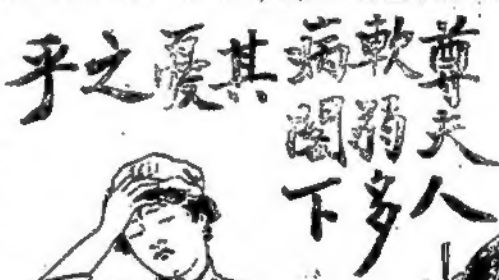 尊夫人
軟弱多
病閣下
其
憂
之
乎